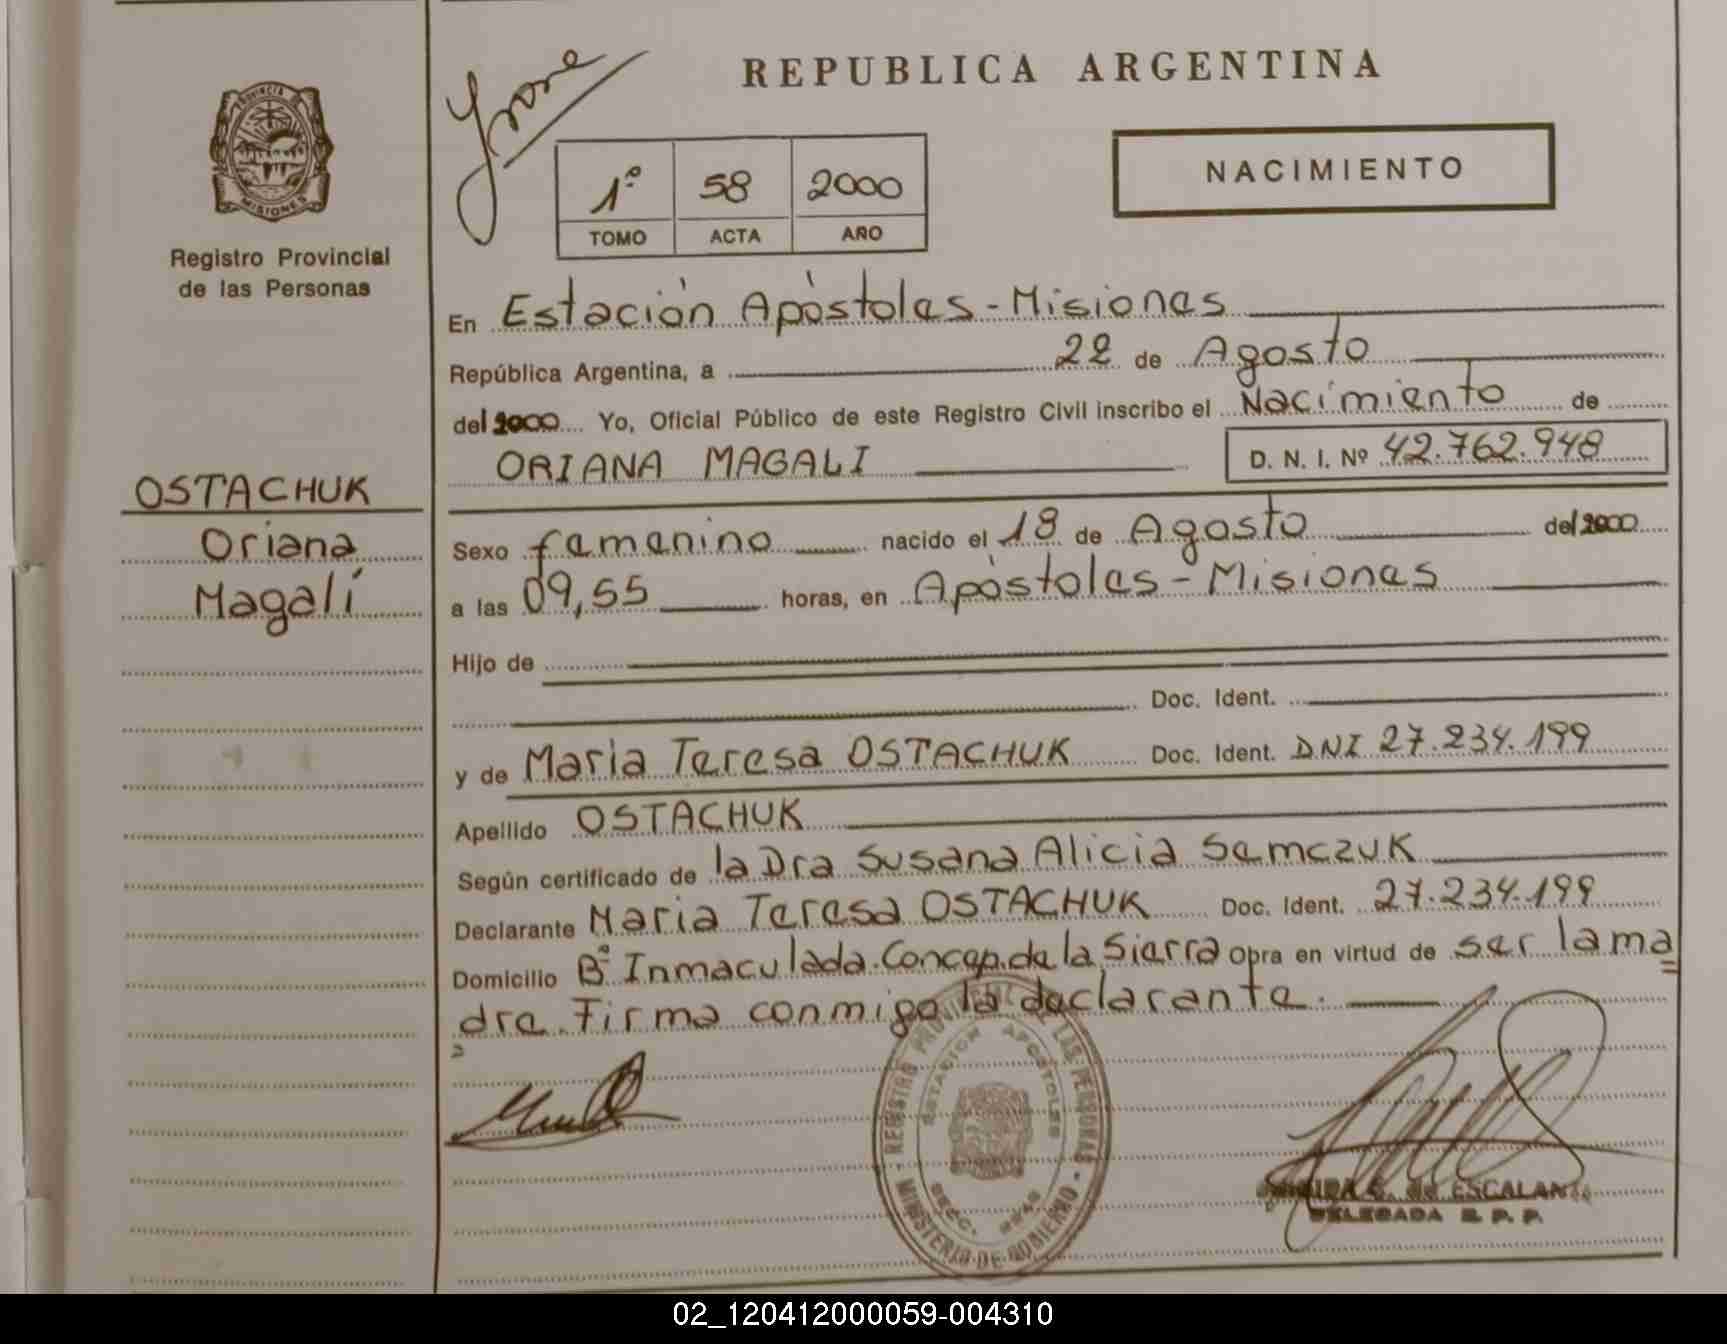 REPUBLICA ARGENTINA
PROVINCIA DE
MISIONES
Registro Provincial
de las Personas
1º 58 2000
TOMO ACTA AÑO
NACIMIENTO
En Estación Apóstoles - Misiones
República Argentina, a 22 de Agosto
del 2000 Yo, Oficial Público de este Registro Civil inscribo el Nacimiento de
ORIANA MAGALI D. N. I. Nº 42.762.948
OSTACHUK
Oriana
Magalí
Sexo femenino nacido el 18 de Agosto del 2000
a las 09,55 horas, en Apóstoles - Misiones
Hijo de
Doc. Ident.
y de Maria Teresa OSTACHUK Doc. Ident. DNI 27.234.199
Apellido OSTACHUK
Según certificado de la Dra Susana Alicia Semczuk
Declarante Maria Teresa OSTACHUK Doc. Ident. 27.234.199
Domicilio Bº Inmaculada.Concep.de la Sierra Obra en virtud de ser la ma
dre. Firma conmigo la declarante.
REGISTRO PROVINCIAL DE LAS PERSONAS
ESTACION APOSTOLES
MINISTERIO DE GOBIERNO
de ESCALAN
DELEGADA R. P. P.
02_120412000059-004310